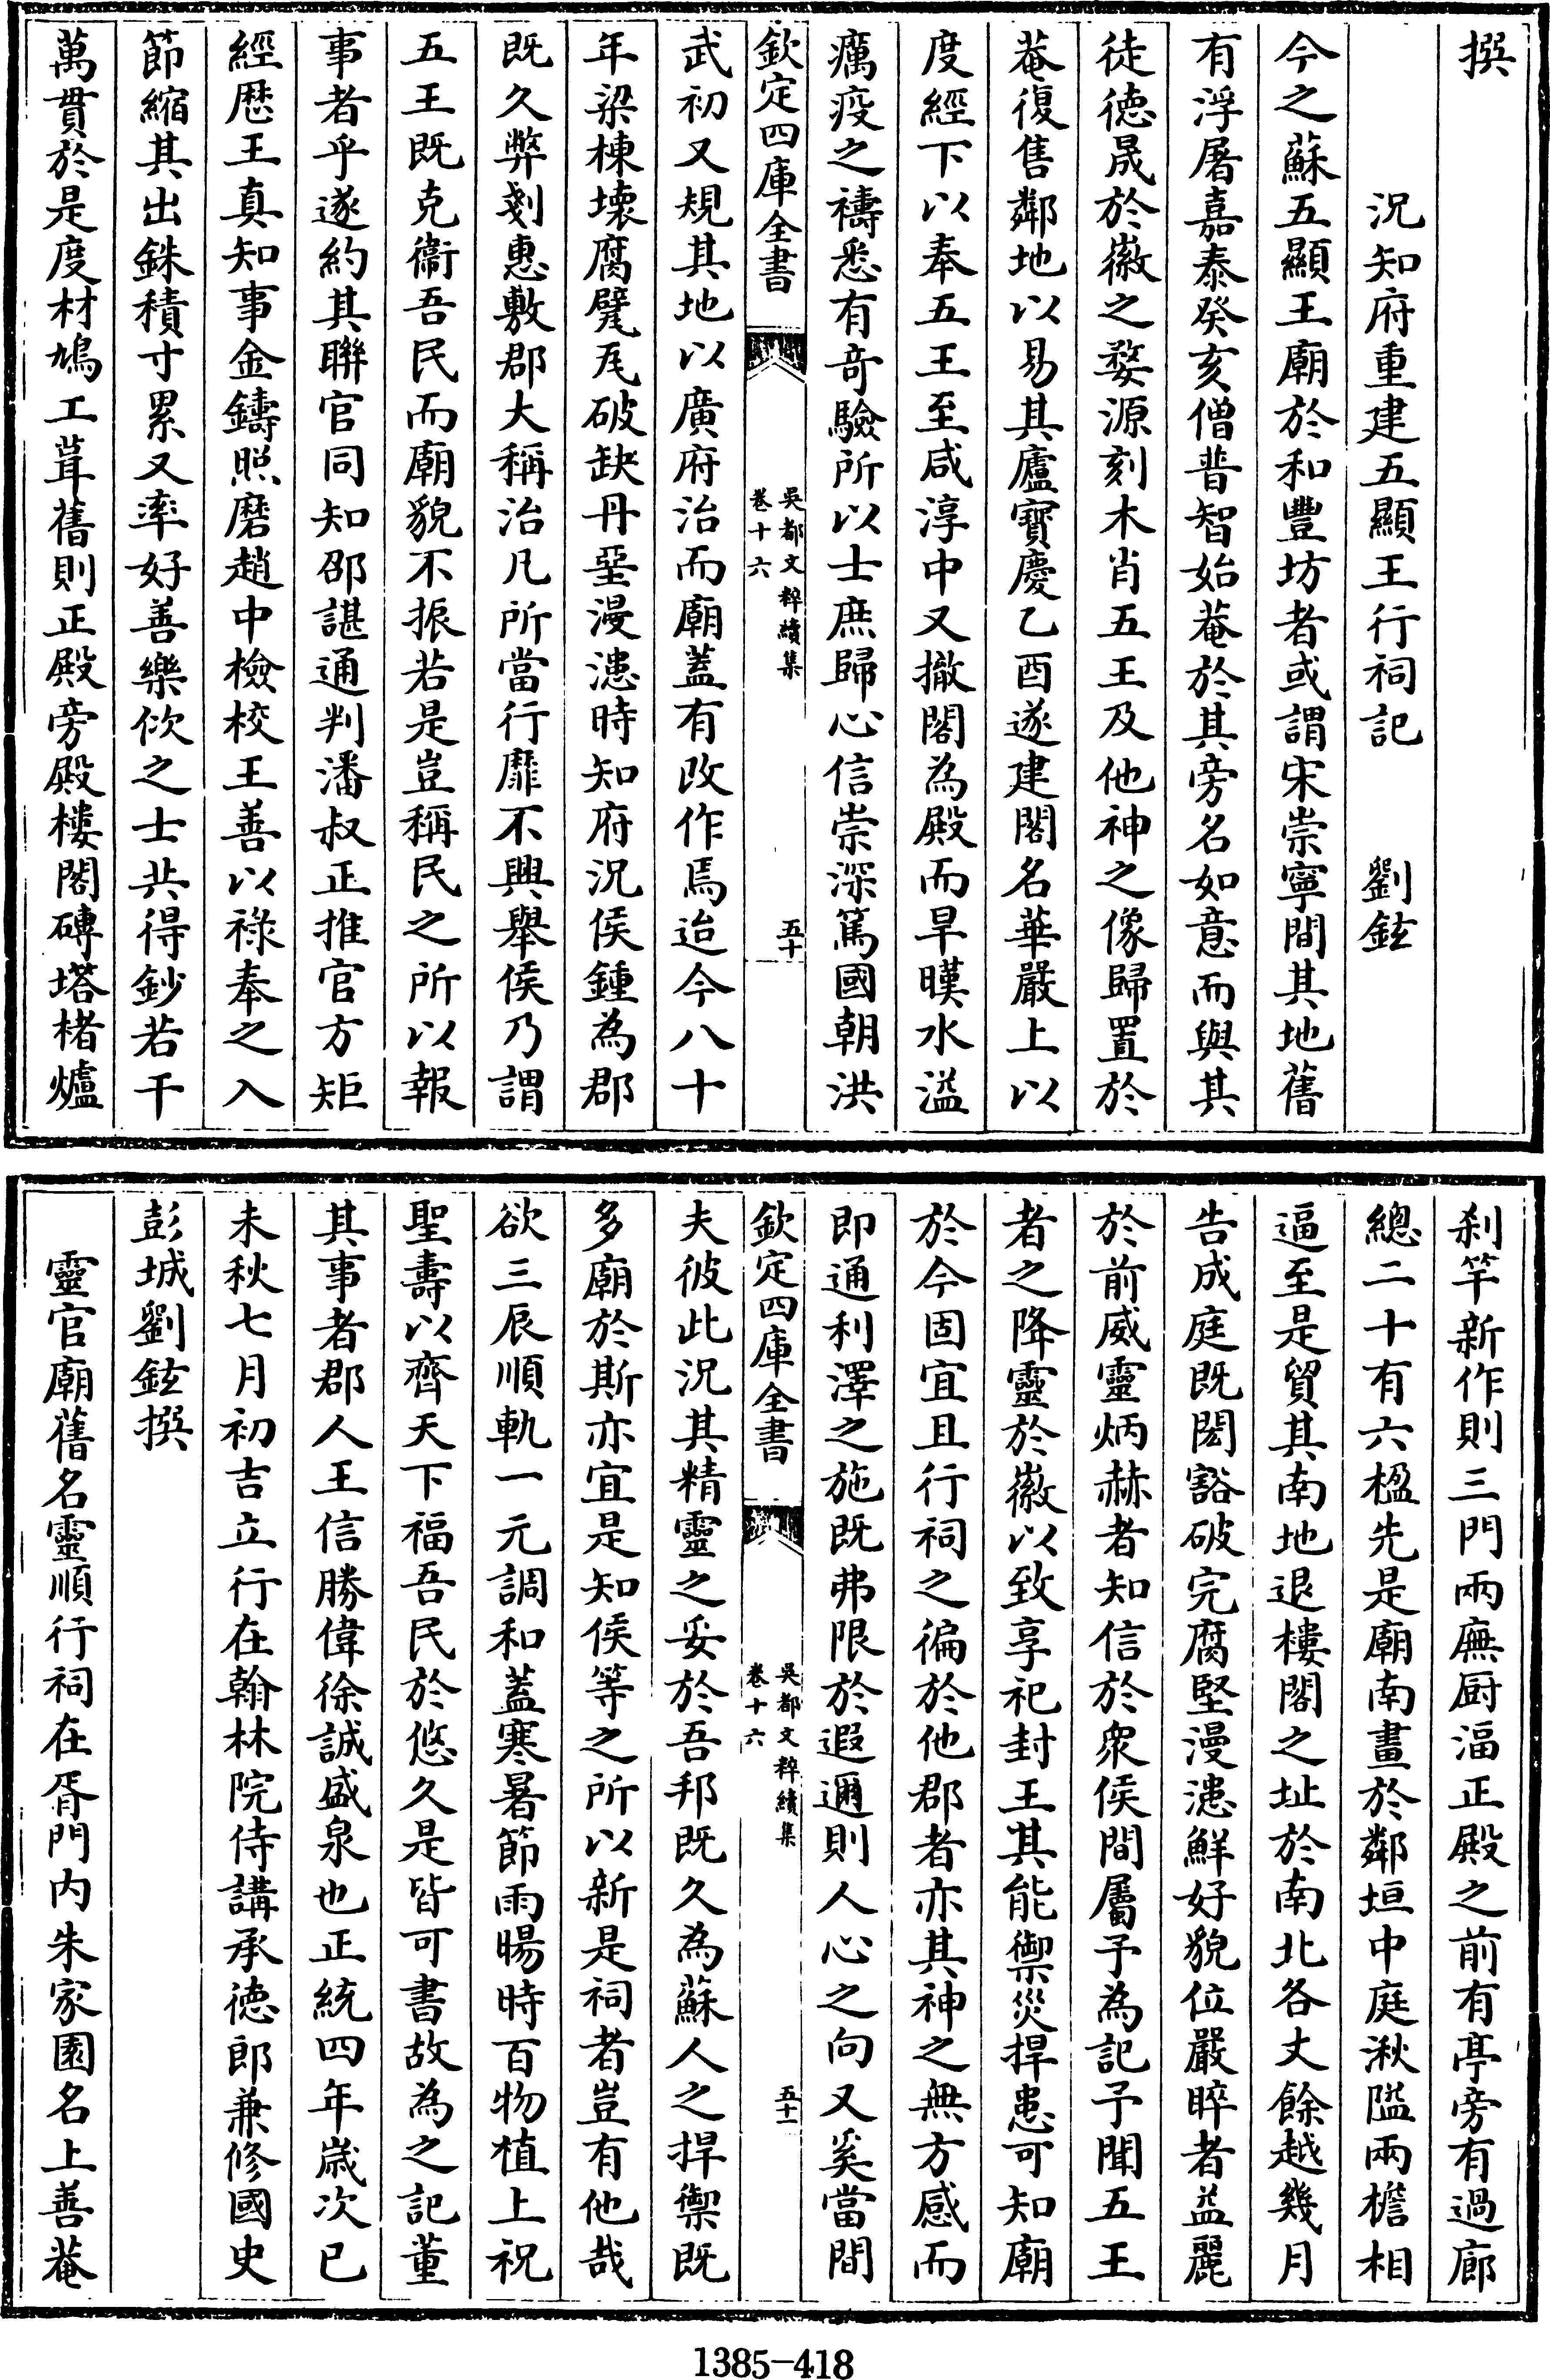 撰
況知府重建五顯王行祠記　劉鉉
今之蘇五顯王廟於和豐坊者或謂宋崇寧間其地舊
有浮屠嘉泰癸亥僧普智始菴於其旁名如意而與其
徒德晟於徽之婺源刻木肖五王及他神之像歸置於
菴復售鄰地以易其廬寶慶乙酉遂建閣名華嚴上以
度經下以奉五王至咸淳中又撤閣為殿而旱暵水溢
癘疫之禱悉有奇驗所以士庶歸心信崇深篤國朝洪
欽定四庫全書
吳都文粹續集
卷十六
五十
武初又規其地以廣府治而廟蓋有改作焉迨今八十
年梁棟壞腐甓瓦破缺丹堊漫漶時知府況侯鍾為郡
既久弊剗惠敷郡大稱治凡所當行靡不興舉侯乃謂
五王既克衞吾民而廟貌不振若是豈稱民之所以報
事者乎遂約其聯官同知邵諶通判潘叔正推官方矩
經歷王真知事金鑄照磨趙中檢校王善以祿奉之入
節縮其出銖積寸累又率好善樂佽之士共得鈔若干
萬貫於是度材鳩工葺舊則正殿旁殿樓閣磚塔楮爐
刹竿新作則三門兩廡厨湢正殿之前有亭旁有過廊
總二十有六楹先是廟南畫於鄰垣中庭湫隘兩檐相
逼至是貿其南地退樓閣之址於南北各丈餘越幾月
告成庭既閎豁破完腐堅漫漶鮮好貌位嚴睟者益麗
於前威靈炳赫者知信於衆侯間屬予為記予聞五王
者之降靈於徽以致享祀封王其能禦災捍患可知廟
於今固宜且行祠之徧於他郡者亦其神之無方感而
即通利澤之施既弗限於遐邇則人心之向又奚當間
欽定四庫全書
吳都文粹續集
卷十六
五十一
夫彼此況其精靈之妥於吾邦既久為蘇人之捍禦既
多廟於斯亦宜是知侯等之所以新是祠者豈有他哉
欲三辰順軌一元調和蓋寒暑節雨暘時百物植上祝
聖壽以齊天下福吾民於悠久是皆可書故為之記董
其事者郡人王信勝偉徐誠盛泉也正統四年歲次己
未秋七月初吉立行在翰林院侍講承德郎兼修國史
彭城劉鉉撰
靈官廟舊名靈順行祠在胥門内朱家園名上善菴
1385-418